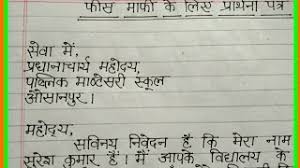 फीस माफी के लिए प्रार्थना पत्र
सेवा में,
प्रधानाचार्य महोदय,
पब्लिक माण्टेसरी स्कूल
औसानपुर।
महोदय,
सविनय निवेदन है कि मेरा नाम
सुरेश कुमार है। मैं आपके विद्यालय के